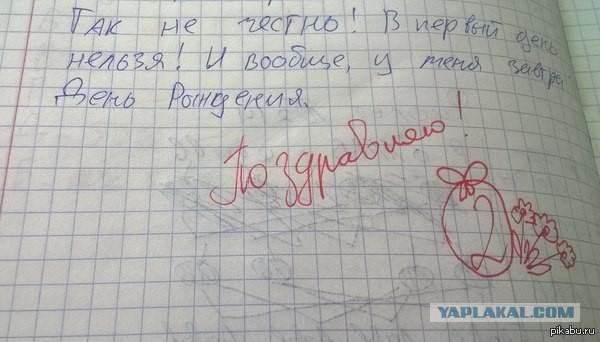 Так не честно! В первый день
нельзя! И вообще, у меня завтра
День Рождения.
Поздравляю!
2
YAPLAKAL.COM
pikabu.ru